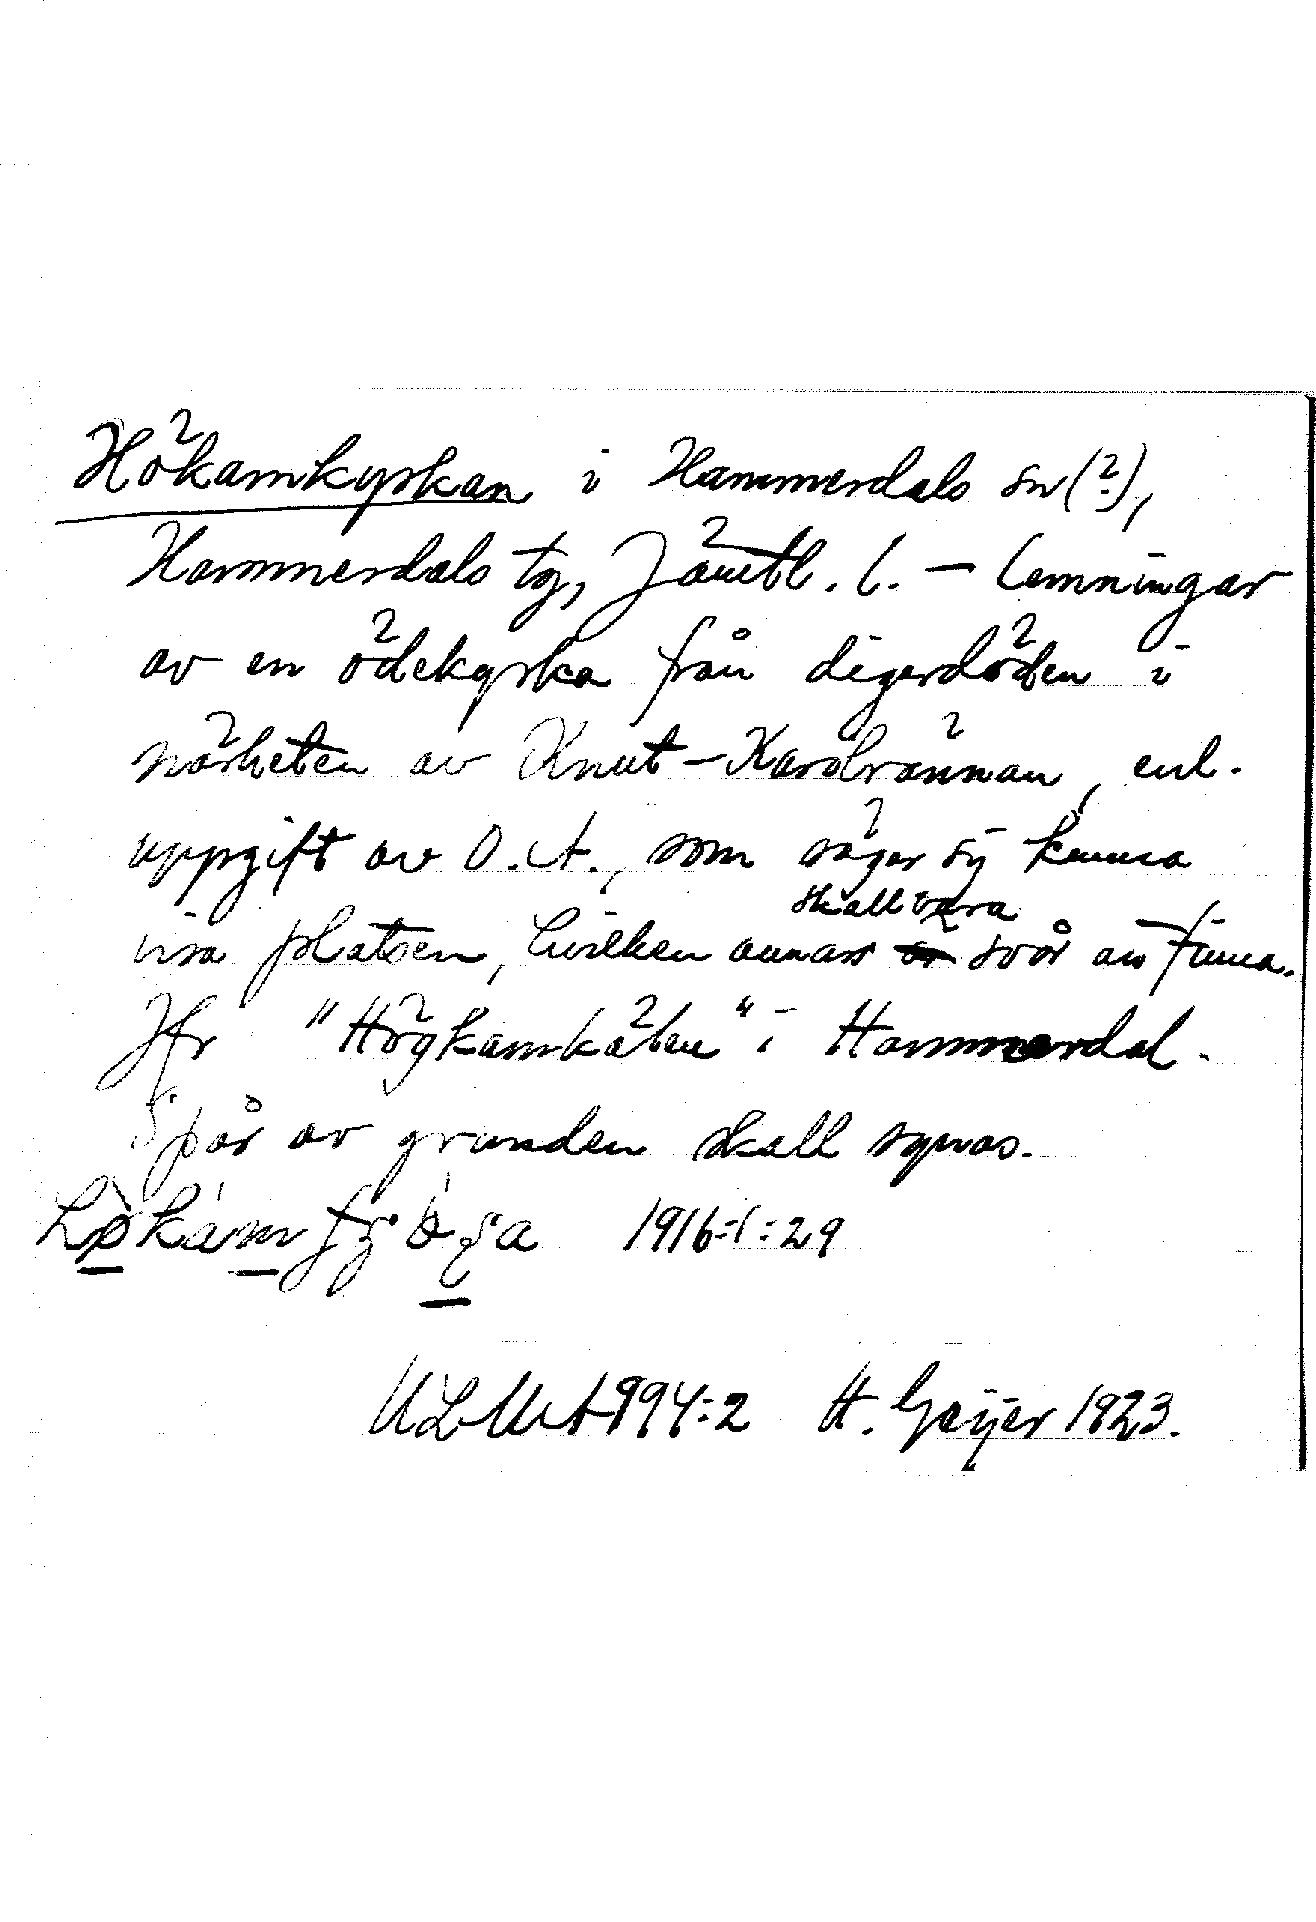 Hökamkyrkan i Hammerdals sn (?),
Hammerdals tg, Jämtl. l. – Lemningar
av en ödekyrka från digerdöden i
närheten av Knut-Karolrännan, enl.
uppgift av O. A., som säger sig kunna
visa platsen, hvilken annars skall vara svår att finna.
Jfr "Högkamkäten" i Hammerdal.
Spår av grunden skall synas.
1916:1:29
ULMA 994:2 H. Geijer 1923.